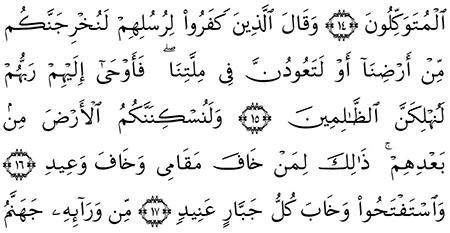 ٱلْمُتَوَكِّلُونَ ﴿١٤﴾ وَقَالَ ٱلَّذِينَ كَفَرُوا۟ لِرُسُلِهِمْ لَنُخْرِجَنَّكُم
مِّنْ أَرْضِنَآ أَوْ لَتَعُودُنَّ فِى مِلَّتِنَا ۖ فَأَوْحَىٰٓ إِلَيْهِمْ رَبُّهُمْ
لَنُهْلِكَنَّ ٱلظَّٰلِمِينَ ﴿١٥﴾ وَلَنُسْكِنَنَّكُمُ ٱلْأَرْضَ مِنۢ
بَعْدِهِمْ ۚ ذَٰلِكَ لِمَنْ خَافَ مَقَامِى وَخَافَ وَعِيدِ ﴿١٦﴾
وَٱسْتَفْتَحُوا۟ وَخَابَ كُلُّ جَبَّارٍ عَنِيدٍ ﴿١٧﴾ مِّن وَرَآئِهِۦ جَهَنَّمُ